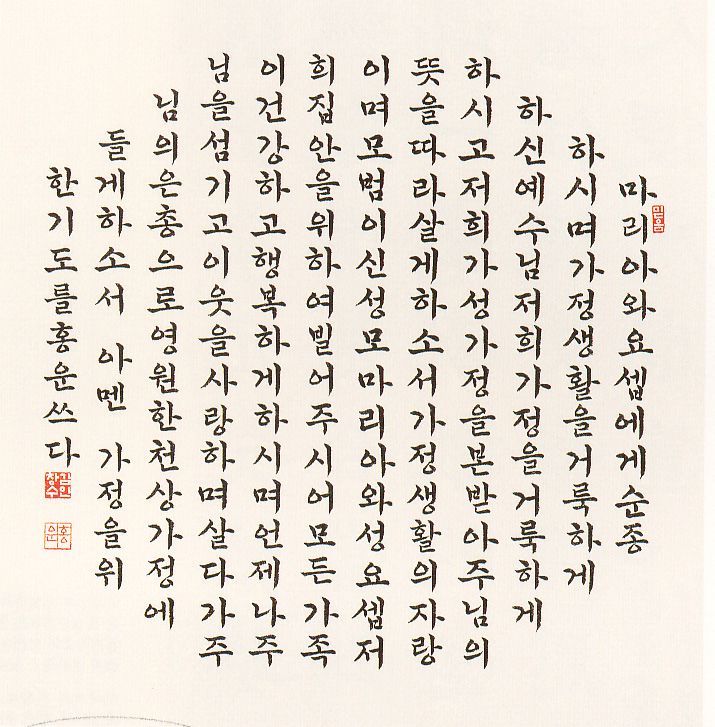 믿음
마리아와요셉에게순종
하시며가정생활을거룩하게
하신예수님저희가정을거룩하게
하시고저희가성가정을본받아주님의
뜻을따라살게하소서가정생활의자랑
이며모범이신성모마리아와성요셉저
희집안을위하여빌어주시어모든가족
이건강하고행복하게하시며언제나주
님을섬기고이웃을사랑하며살다가주
님의은총으로영원한천상가정에
들게하소서 아멘 가정을위
한기도를홍운쓰다
홍운